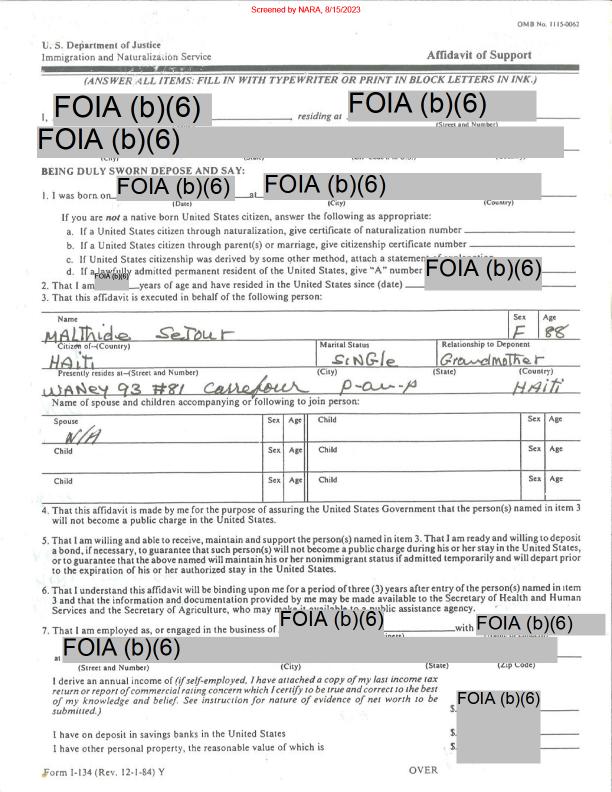 Screened by NARA, 8/15/2023
OMB No. 1115-0062
U. S. Department of Justice
Immigration and Naturalization Service
Affidavit of Support
(ANSWER ALL ITEMS: FILL IN WITH TYPEWRITER OR PRINT IN BLOCK LETTERS IN INK.)
I, FOIA (b)(6) residing at FOIA (b)(6)
(Street and Number)
FOIA (b)(6)
(City) (State) (Country)
BEING DULY SWORN DEPOSE AND SAY:
1. I was born on FOIA (b)(6) at FOIA (b)(6)
(Date) (City) (Country)
If you are not a native born United States citizen, answer the following as appropriate:
a. If a United States citizen through naturalization, give certificate of naturalization number
b. If a United States citizen through parent(s) or marriage, give citizenship certificate number
c. If United States citizenship was derived by some other method, attach a statement of explanation
d. If a lawfully admitted permanent resident of the United States, give "A" number FOIA (b)(6)
2. That I am FOIA (b)(6) years of age and have resided in the United States since (date)
3. That this affidavit is executed in behalf of the following person:
Name Sex Age
MALThide SeTour F 88
Citizen of—(Country) Marital Status Relationship to Deponent
HAiTi SiNGle Grandmother
Presently resides at—(Street and Number) (City) (State) (Country)
WANey 93 #81 Carrefour P-au-p HAiTi
Name of spouse and children accompanying or following to join person:
Spouse Sex Age Child Sex Age
N/A
Child Sex Age Child Sex Age
Child Sex Age Child Sex Age
4. That this affidavit is made by me for the purpose of assuring the United States Government that the person(s) named in item 3
will not become a public charge in the United States.
5. That I am willing and able to receive, maintain and support the person(s) named in item 3. That I am ready and willing to deposit
a bond, if necessary, to guarantee that such person(s) will not become a public charge during his or her stay in the United States,
or to guarantee that the above named will maintain his or her nonimmigrant status if admitted temporarily and will depart prior
to the expiration of his or her authorized stay in the United States.
6. That I understand this affidavit will be binding upon me for a period of three (3) years after entry of the person(s) named in item
3 and that the information and documentation provided by me may be made available to the Secretary of Health and Human
Services and the Secretary of Agriculture, who may make it available to a public assistance agency.
7. That I am employed as, or engaged in the business of FOIA (b)(6) with FOIA (b)(6)
at FOIA (b)(6)
(Street and Number) (City) (State) (Zip Code)
I derive an annual income of (if self-employed, I have attached a copy of my last income tax
return or report of commercial rating concern which I certify to be true and correct to the best
of my knowledge and belief. See instruction for nature of evidence of net worth to be
submitted.) $ FOIA (b)(6)
I have on deposit in savings banks in the United States $
I have other personal property, the reasonable value of which is $
Form I-134 (Rev. 12-1-84) Y OVER